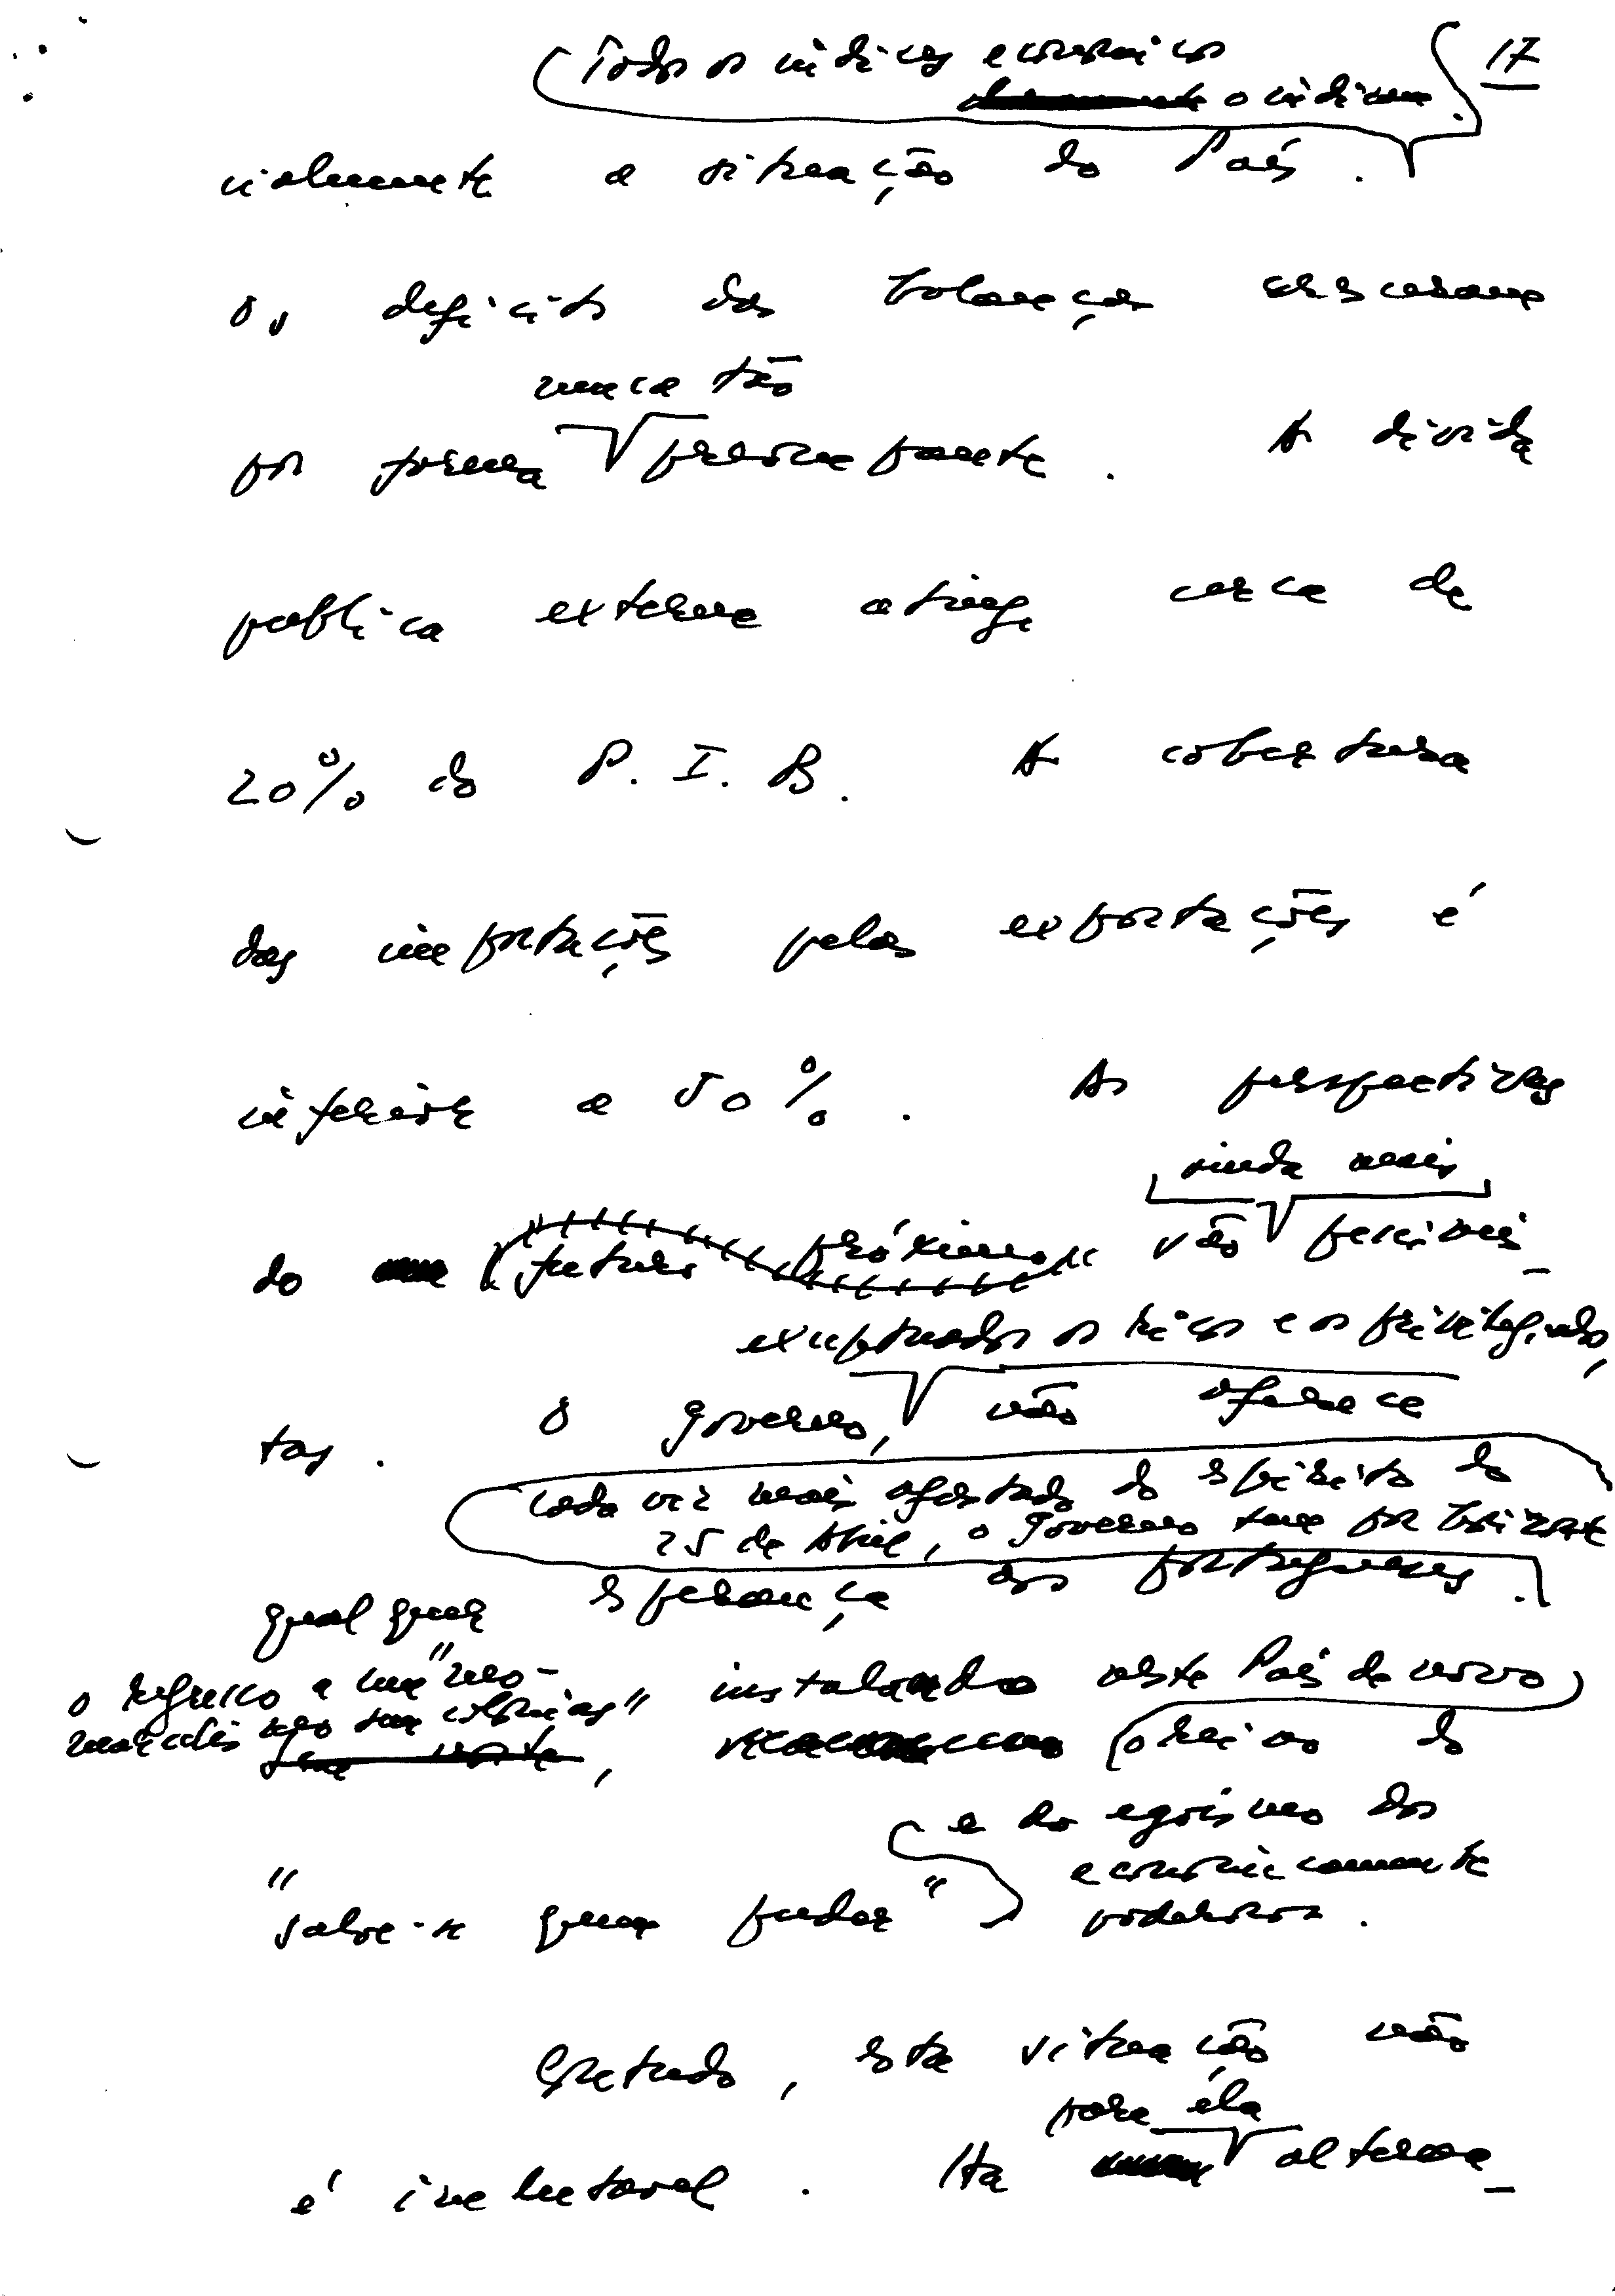 17
Todos os índices económicos
o indicam.
cialmente a situação do País.
Os deficits das balanças cresceram
nunca tão
por forma preocupante. A dívida
pública externa atinge cerca de
20% do P.I.B. A cobertura
das importações pelas exportações é
inferior a 50%. As perspectivas
ainda mais
do futuro próximo são pessimis-
exceptuados os ricos e os privilegiados,
tas. O governo, não oferece
Cada vez mais afastado do espírito do
25 de Abril, o Governo tem por
qualquer esperança aos portugueses.
o regresso a uma "neo-
instalando neste País de novo
sem colónias"
o reino do
e do egoísmo dos
economicamente
"salve-se quem puder" poderosos.
Contudo, esta situação não
para ela
é inelutável. Há alterna-